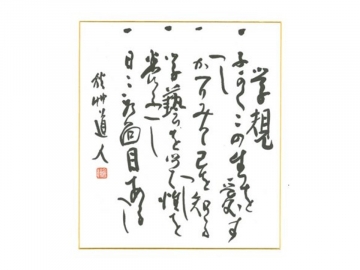 学規
一 ふかくこの生を愛す
べし
一 かへりみて己を知る
べし
一 学藝を以て性を
養ふべし
一 日々新面目あるべし
秋艸道人